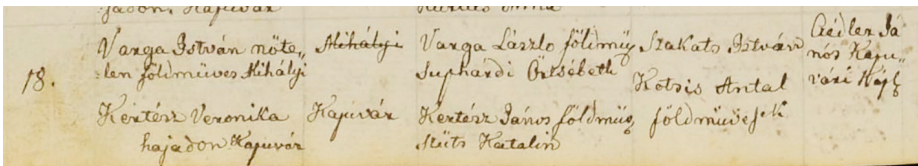 jadon Kapuvár
18.
Varga István nőte-
len földmüves Mihályi
Mihályi
Varga László földmüv
Suphardi Örsébeth
Szakats István
Kotsis Antal
földmüvesek
János Kapu-
vári Káp
Kertész Veronika
hajadon Kapuvár
Kapuvár
Kertész János földmüv
Szüts Katalin